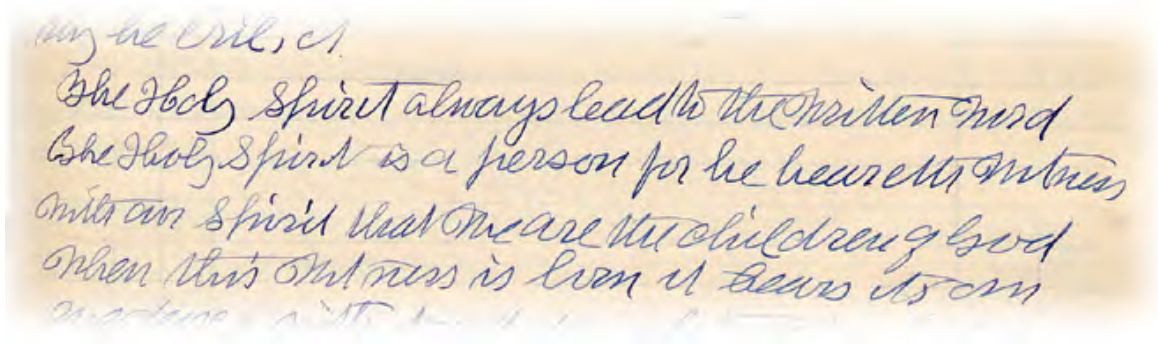 may be evil, cl.
The Holy Spirit always lead to the written word
The Holy Spirit is a person for he beareth witness
with our Spirit that we are the children of God
When this witness is born it bears its own